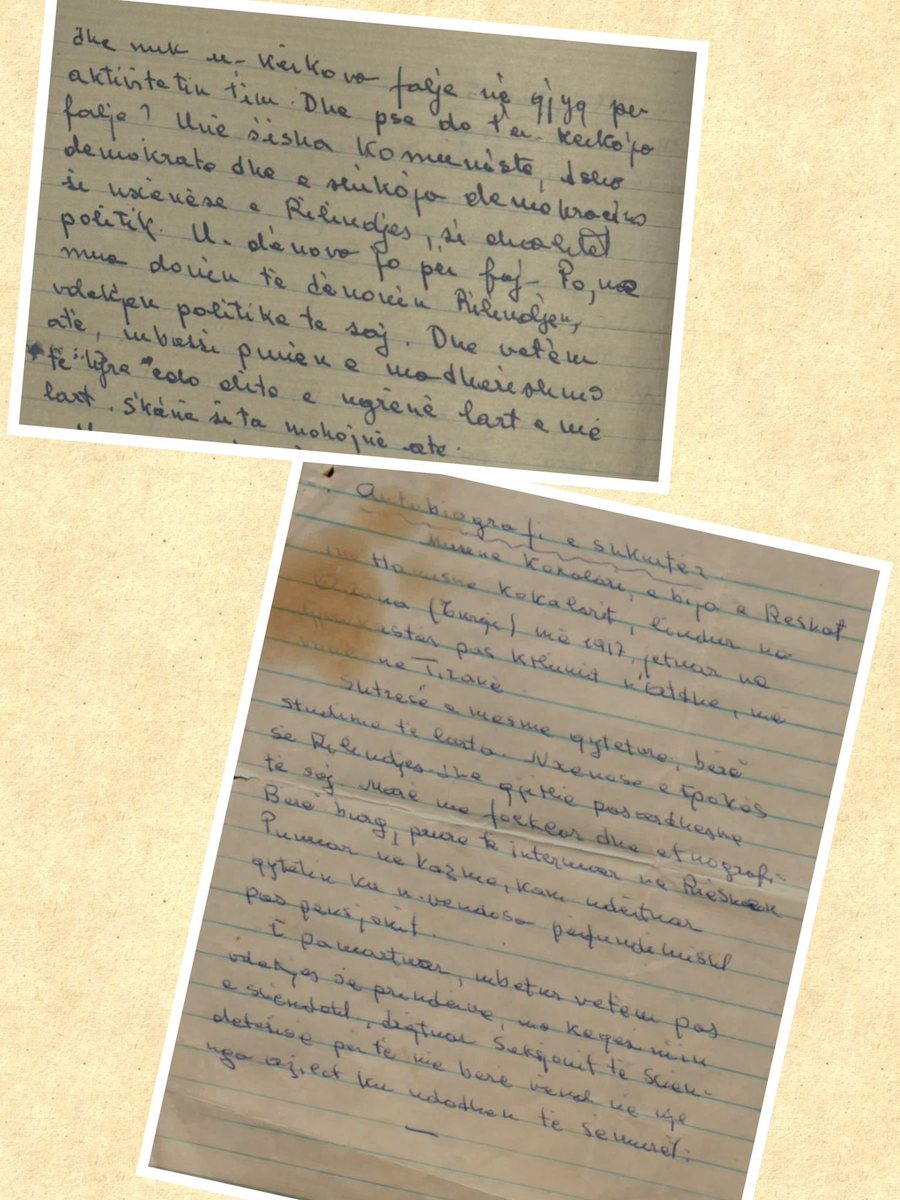 dhe nuk u-kërkova falje në gjyq për
aktivitetin tim. Dhe pse do t'u-kërkoja
falje? Unë s'isha komuniste, isha
demokrate dhe e shikoja demokracinë
si nxënëse e Rilindjes, si
politik. U-dënova jo për faj. Po, me
mua donin të dënonin Rilindjen,
vdekjen politike të saj. Dhe vetëm
atë, mbassi punën e madhërishme
të "tyre" çdo dite e ngrenë lart e më
lart. S'kanë si ta mohojnë atë.
Autobiografi e shkurtër
Musine Kokalari, e bija e Reshat
Hanushe Kokalarit, lindur në
Adana (Turqi) më 1917, jetuar në
Gjirokastër pas kthimit n'atdhe, më
vonë në Tiranë.
Shtresë e mesme qytetare, bërë
studime të larta. Nxënëse e Epokës
së Rilindjes dhe gjithë pasardhësve
të saj. Marë me folklor dhe etnografi.
Bërë burg, pune të internuar në Rrëshen
Punuar në kazmë, kam ndërtuar
qytetin ku u-vendosa përfundimisht
pas pensjonit.
E pamartuar, mbetur vetëm pas
vdekjes së prindërve, me keqësimin
e shëndetit, drejtuar Seksjonit të Shën-
detësisë për të më bërë vend në një
nga azilet ku ndodhen të sëmurët.